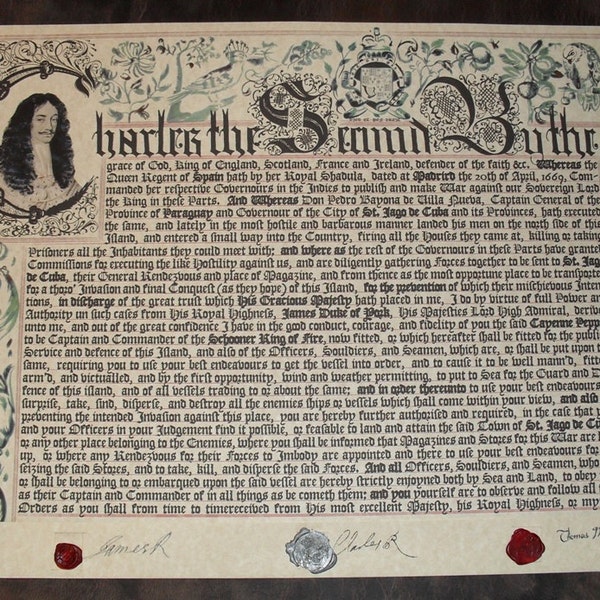 Charles the Second By the
grace of God, King of England, Scotland, France and Ireland, defender of the faith &c. Whereas the
Queen Regent of Spain hath by her Royal Shadula, dated at Madrird the 20th of April, 1669, Com-
manded her respective Governours in the Indies to publish and make War against our Sovereign Lord
the King in these Parts. And Whereas Don Pedro Bayona de Villa Nueva, Captain General of the
Province of Paraguay and Governour of the City of St. Jago de Cuba and its Provinces, hath executed
the same, and lately in the most hostile and barbarous manner landed his men on the north side of this
Island, and entered a small way into the Country, firing all the Houses they came at, killing or taking
Prisoners all the Inhabitants they could meet with; and where as the rest of the Governours in these Parts have granted
Commissions for executing the like Hostility against us, and are diligently gathering Forces together to be sent to St. Jago
de Cuba, their General Rendezvous and place of Magazine, and from thence as the most opportune place to be transported
for a thoro' Invasion and final Conquest (as they hope) of this Island, for the prevention of which their mischievous Inten-
tions, in discharge of the great trust which His Gracious Majesty hath placed in me, I do by virtue of full Power and
Authority un such cases from His Royal Highness, James Duke of York, His Majesties Lord High Admiral, derived
unto me, and out of the great confidence I have in the good conduct, courage, and fidelity of you the said Cayenne Pepp
to be Captain and Commander of the Schooner Ring of Fire, now fitted, or which hereafter shall be fitted for the public
Service and defence of this Island, and also of the Officers, Souldiers, and Seamen, which are, or shall be put upon the
same, requiring you to use your best endeavours to get the vessel into order, and to cause it to be well mann'd, fitted,
arm'd, and victualled, and by the first opportunity, wind and weather permitting, to put to Sea for the Guard and De-
fence of this island, and of all vessels trading to or about the same; and in order thereunto to use your best endeavours
surprise, take, sind, disperse, and destroy all the enemies ships or vessels which shall come within your view, and also
preventing the intended Invasion against this place, you are hereby further authorised and required, in the case that you
and your Officers in your Judgement find it possible, or feasible to land and attain the said Town of St. Jago de Cu
or any other place belonging to the Enemies, where you shall be informed that Magazines and Stores for this War are
up, or where any Rendezvous for their Forces to Imbody are appointed and there to use your best endeavours for
seizing the said Stores, and to take, kill, and disperse the said Forces. And all Officers, Souldiers, and Seamen, who
or shall be belonging to or embarqued upon the said vessel are hereby strictly enjoyned both by Sea and Land, to obey
as their Captain and Commander of in all things as be cometh them; and you yourself are to observe and follow all
Orders as you shall from time to timereceived from His most excellent Majesty, his Royal Highness, or my
James R
Charles R
Thomas